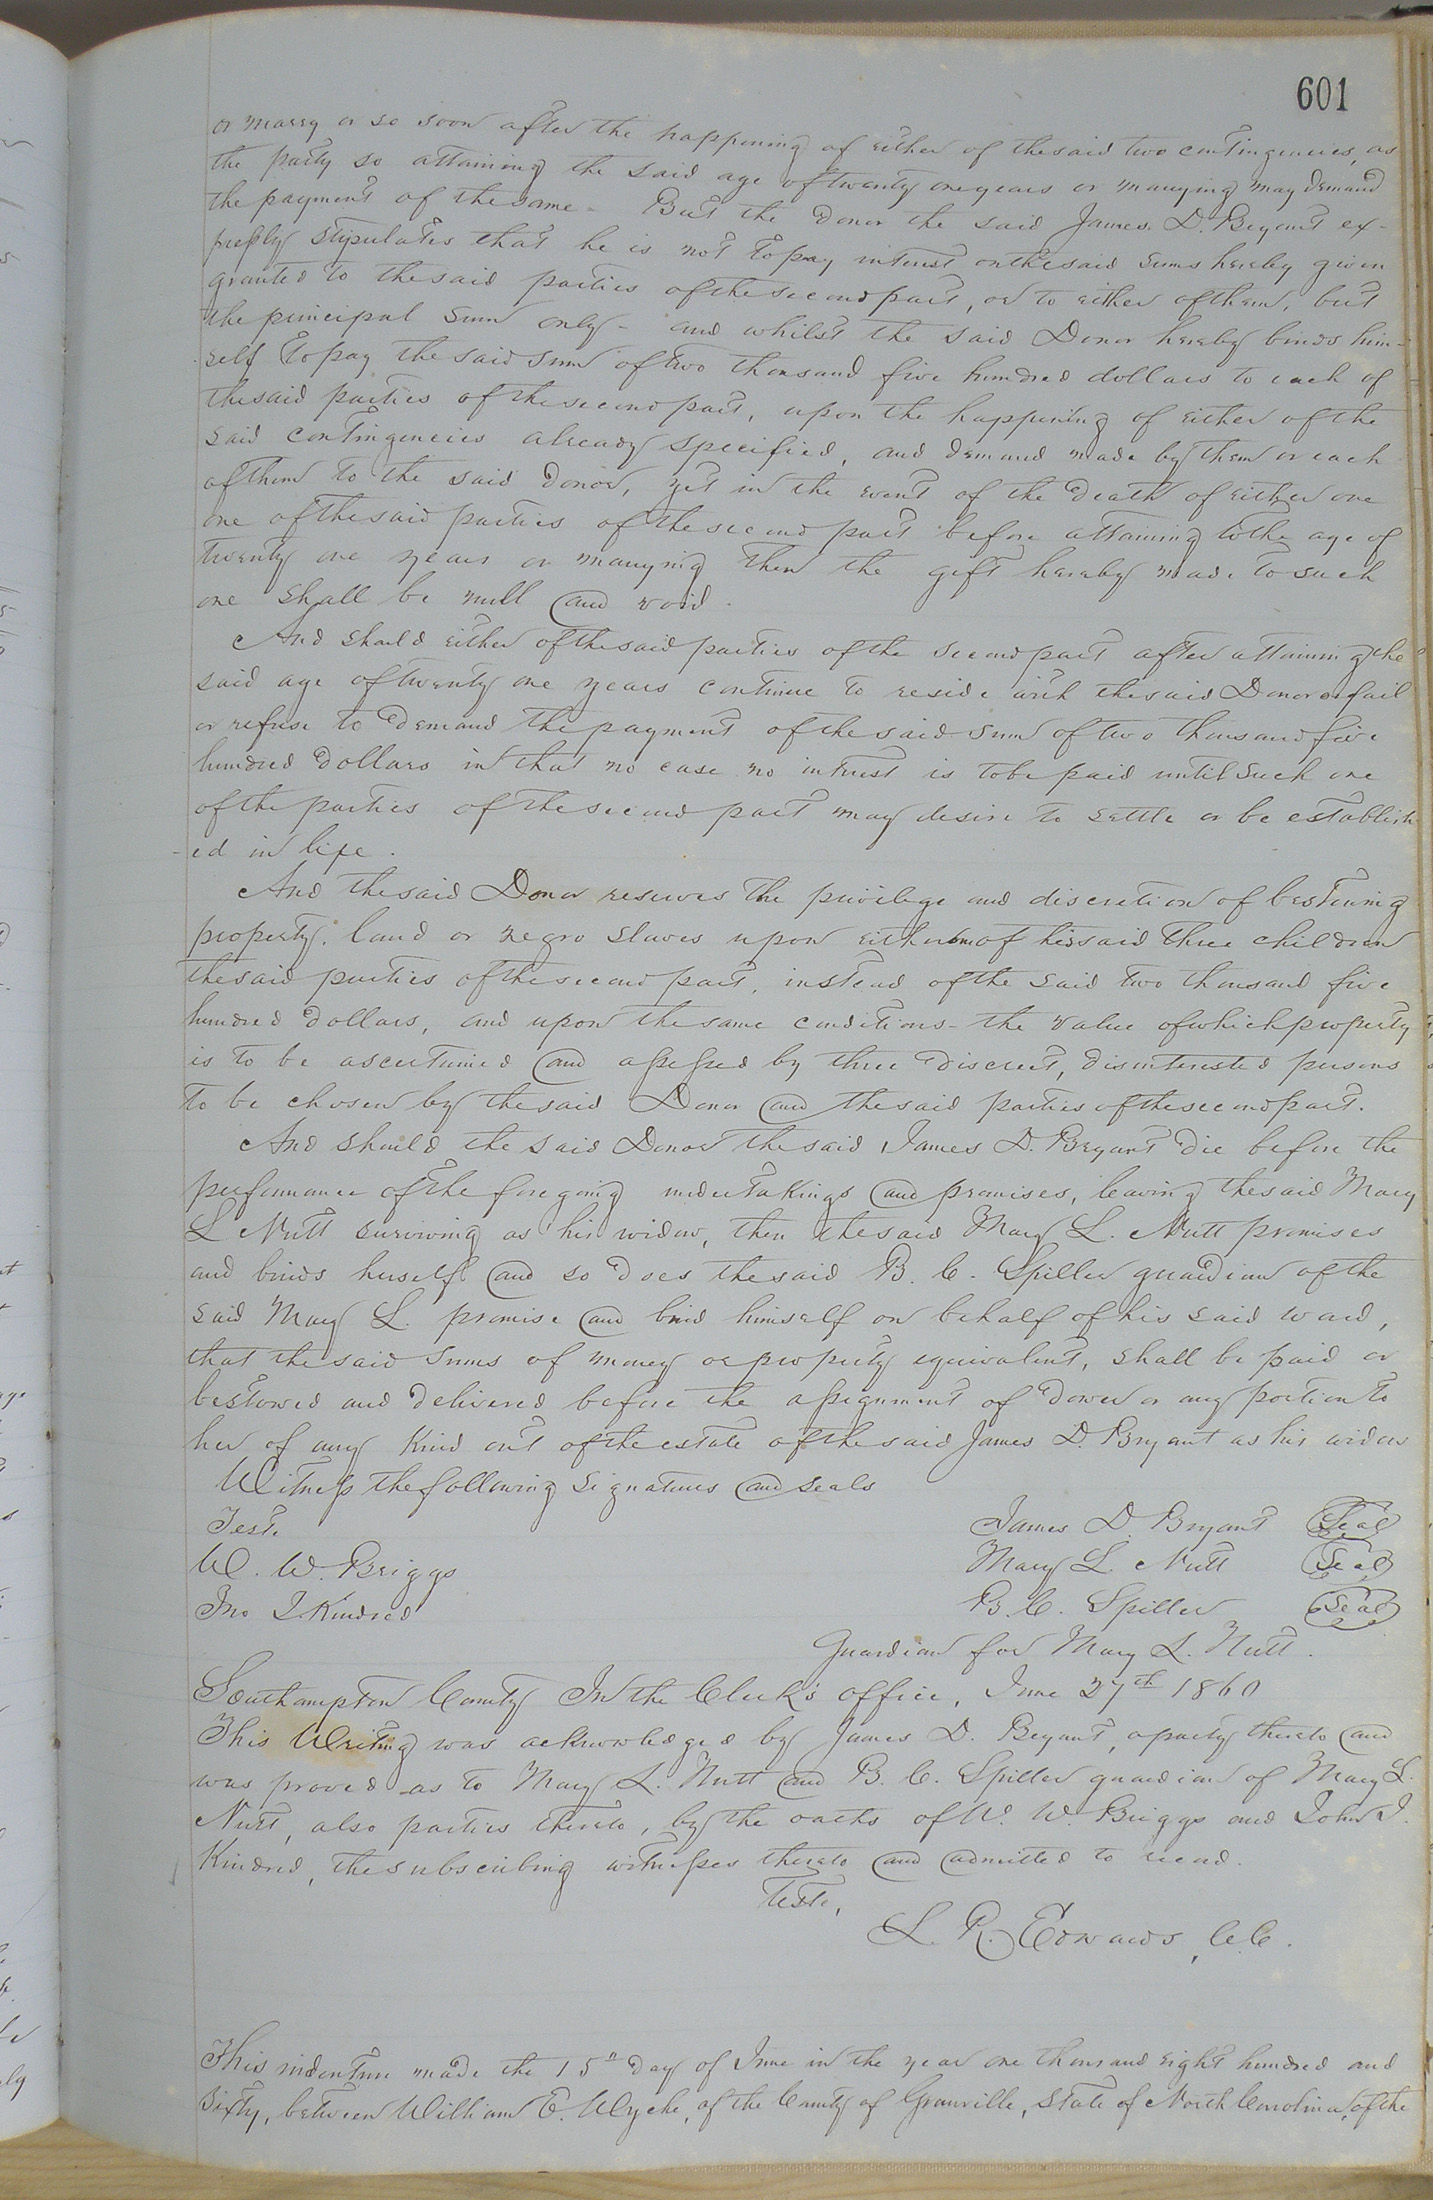 601
or marry or so soon after the happening of either of the said two contingencies, as
the party so attaining the said age of twenty one years or marrying may demand
the payment of the same - But the Donor the said James D. Bryant ex-
pressly stipulates that he is not to pay interest on the said sums hereby given
granted to the said parties of the second part, or to either of them, but
the principal sum only - and whilst the said Donor hereby binds him-
self to pay the said sum of two thousand five hundred dollars to each of
the said parties of the second part, upon the happening of either of the
said contingencies already specified, and demand made by them or each
of them to the said Donor, yet in the event of the death of either one
one of the said parties of the second part before attaining to the age of
twenty one years or marrying then the gift hereby made to such
one shall be null and void.
And should either of the said parties of the second part after attaining the
said age of twenty one years continue to reside with the said Donor or fail
or refuse to demand the payment of the said sum of two thousand five
hundred dollars in that no case no interest is to be paid until such one
of the parties of the second part may desire to settle or be establish
-ed in life.
And the said Donor reserves the privilege and discretion of bestowing
property, land or negro slaves upon either of his said three children
the said parties of the second part, instead of the said two thousand five
hundred dollars, and upon the same conditions - the value of which property
is to be ascertained and assessed by three discreet, disinterested persons
to be chosen by the said Donor and the said parties of the second part.
And should the said Donor the said James D. Bryant die before the
performance of the foregoing undertakings and promises, leaving the said Mary
L Nutt surviving as his widow, then the said Mary L. Nutt promises
and binds herself and so does the said B. C. Spiller guardian of the
said Mary L. promise and bind himself on behalf of his said ward,
that the said sums of money or property equivalent, shall be paid or
bestowed and delivered before the assignment of dower or any portion to
her of any kind out of the estate of the said James D. Bryant as his widow
Witness the following signatures and seals
Teste James D. Bryant Seal
W. W. Briggs Mary L Nutt Seal
Jno J. Kindred B. C. Spiller Seal
Guardian for Mary L. Nutt.
Southampton County In the Clerk's office, June 27th 1860
This Writing was acknowledged by James D. Bryant, a party thereto and
was proved as to Mary L. Nutt and B. C. Spiller guardian of Mary L.
Nutt, also parties thereto, by the oaths of W. W. Briggs and John J.
Kindred, the subscribing witnesses thereto and admitted to record.
Teste,
L. R. Edwards, C.C.
This indenture made the 15th day of June in the year one thousand eight hundred and
Sixty, between William E. Wyche, of the County of Granville, State of North Carolina, of the